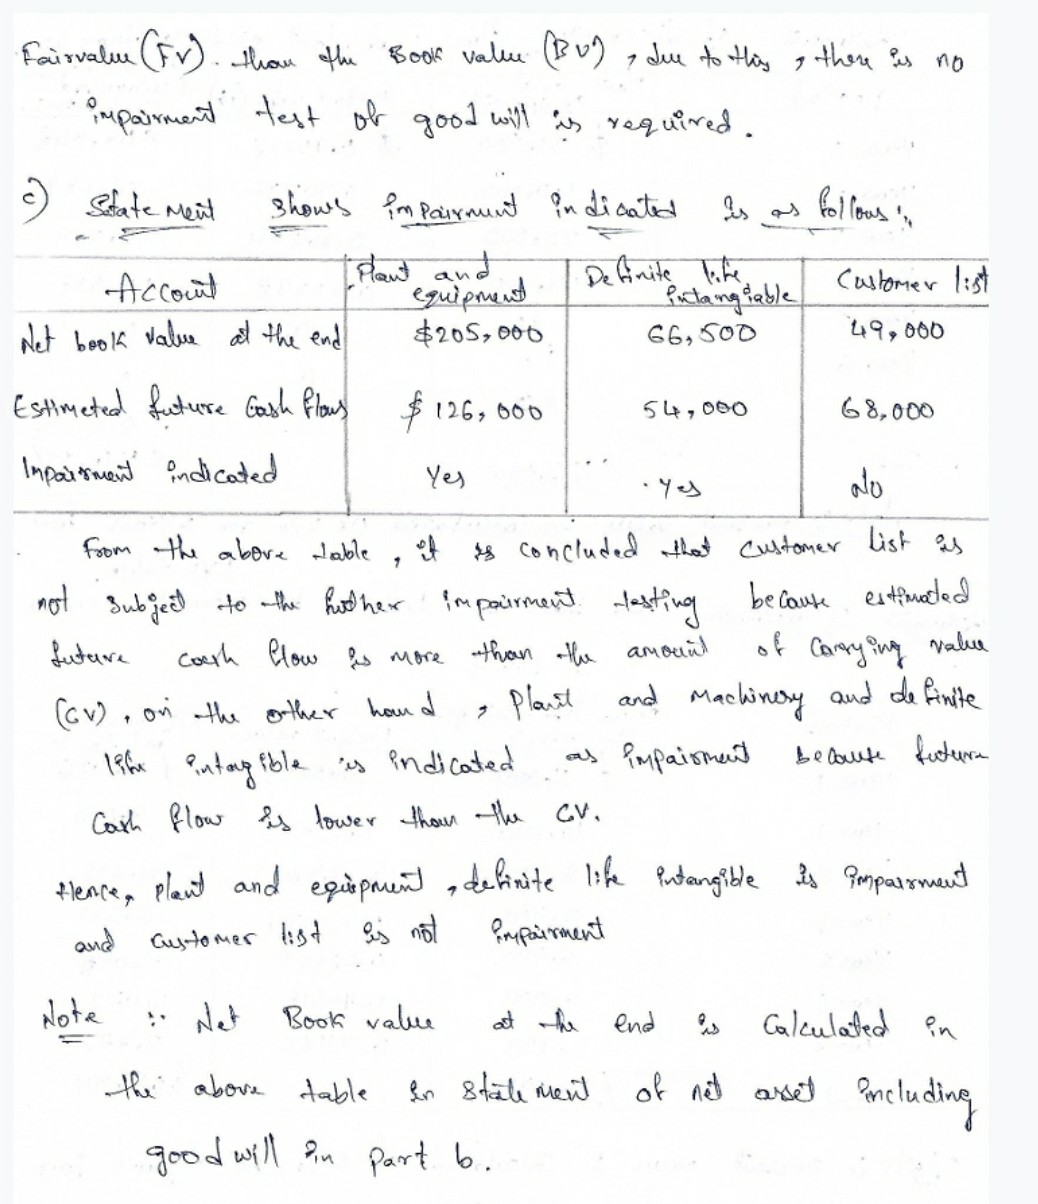 Fairvalue (FV). than the Book value (BV), due to this, there is no
impairment test of good will is required.
c) Statement shows impairment indicated is as follows:
Account Plant and equipment Definite life intangiable Customer list
Net book value at the end $205,000 66,500 49,000
Estimeted future Cash flows $ 126,000 54,000 68,000
Impairment indicated Yes Yes No
From the above table, it is concluded that customer list is
not subject to the further impairment testing because estimated
future cash flow is more than the amount of Carrying value
(CV), on the other hand, plant and Machinery and definite
life intangible is indicated as impairment because future
Cash flow is lower than the CV.
Hence, plant and equipment, definite life intangible is impairment
and customer list is not impairment
Note :. Net Book value at the end is Calculated in
the above table in statement of net asset including
good will in part b.